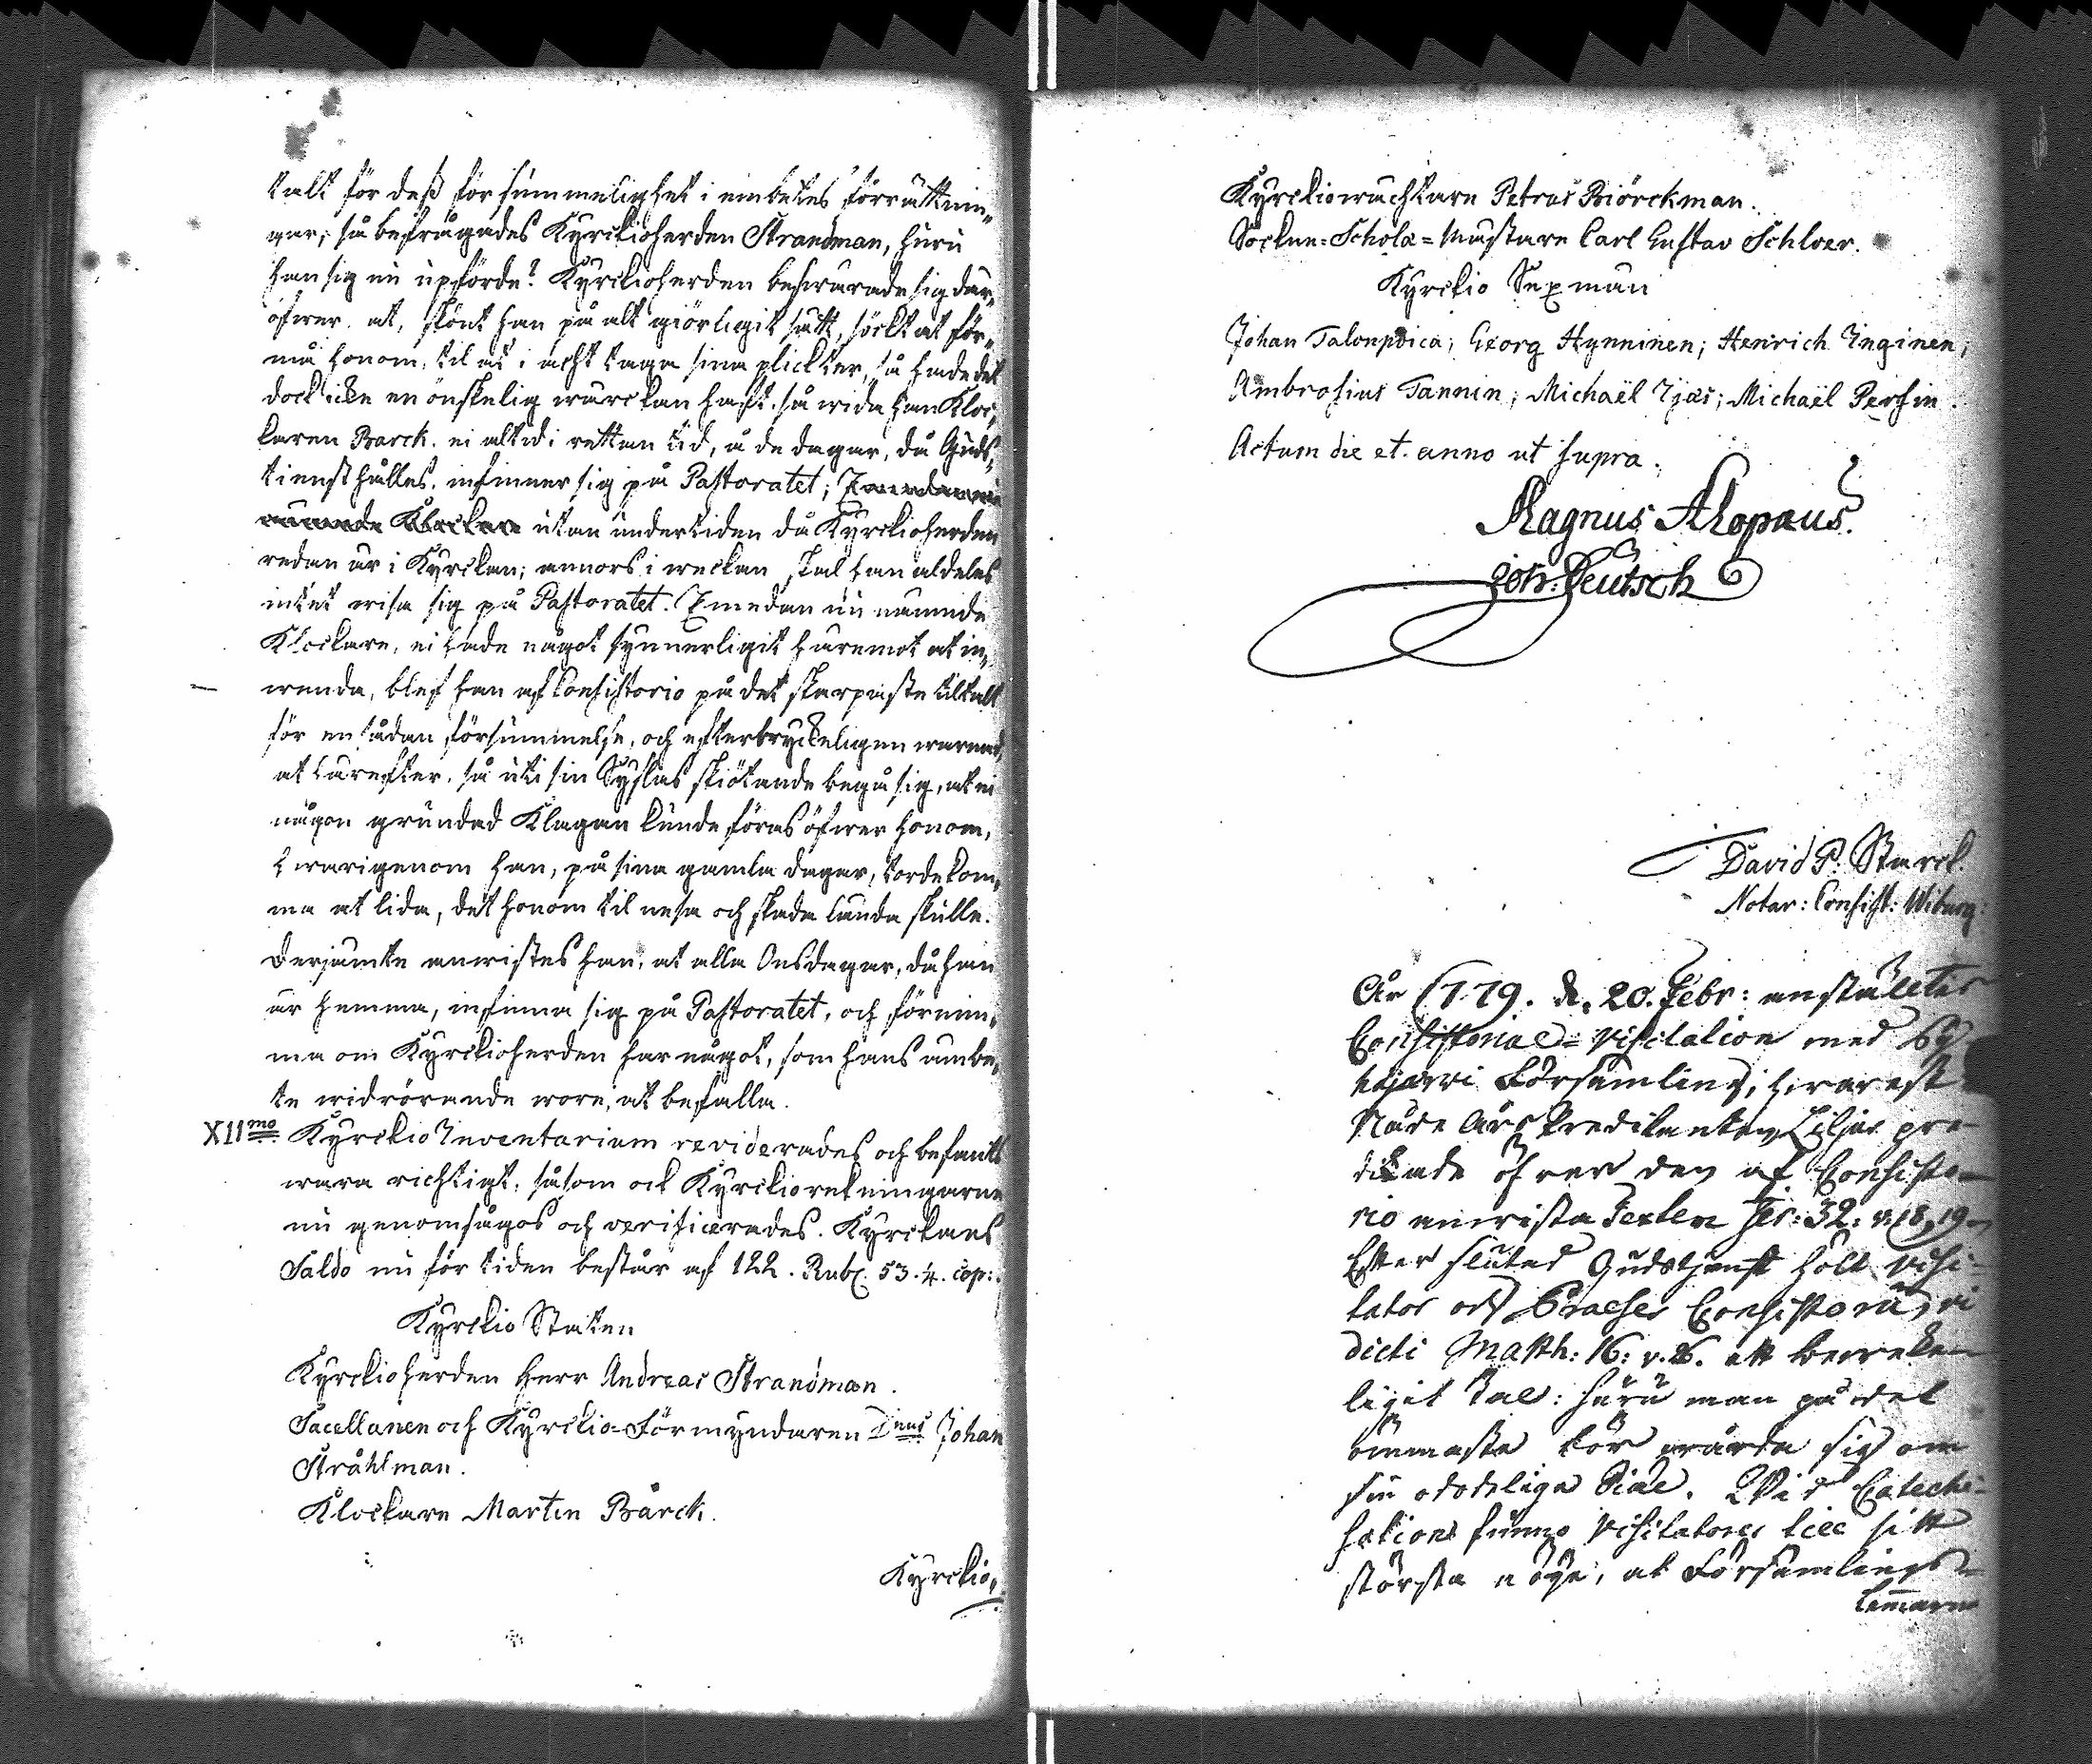 talt för deß försummelighet i embetes förrättnin„
gar, så befrågades Kyrckioherden Strandman, huru
han sig nu upförde? Kyrckioherden beswärade sig där„
öfwer. at, skönt han på alt giörligit sätt, sökt at för„
må honom, til at i acht taga sina plickter, så hade det
dock icke en önskelig wärckan haft. så wida han Kloc„
karen Barck. ei altid i rettan tid, å de dagar, då Guds„
tienst hålles. infinner sig på Pastoratet;
utan undertiden då Kyrckioherden
redan är i Kyrckan; annors i weckan skal han aldeles
intet wisa sig på Pastoratet. Emedan nu nämnde
Klockare, ei hade något synnerligit häremot at in„
wenda, blef han af Consistorio på det skarpaste tiltalt
för en sådan försummelse, och eftertryckeligen warnad,
at härefter. så uti sin Syslas skiötande begå sig, at ei
någon grundad Klagan kunde föras öfwer honom,
hwarigenom han, på sina gamla dagar, torde kom„
ma at lida, det honom til nesa och skada lända skulle.
Derjämte anwistes han, at alla Onsdagar, då han
är hemma, infinna sig på Pastoratet, och förnim„
ma om Kyrckioherden har något, som hans embe„
te widrörande wore, at befalla.
XII<sup>mo</sup> Kyrckio Inventarium reviderades och befants
wara richtigt, såsom ock Kyrckiorekningarne
nu genomsågos och verificerades. Kyrckans
Saldo nu för tiden består af 122. Rub. 53.¼. cop:.
Kyrckio Staten
Kyrckioherden Herr Andreas Strandman.
Sacellanen och Kyrckio-Förmyndaren D<sup>nus</sup> Johan
Stråhlman.
Klockare Martin Bärck.
Kyrckio„
Kyrckiowächtare Petrus Biörckman.
Sockne-Scholæ-Mästare Carl Gustav Schloer.
Kyrckio Sexmän
Johan Talonpoica; Georg Hynninen; Henrich Inginen;
Ambrosius Tannin; Michaël Ijäs; Michaël Persin.
Actum die et. anno ut supra.
Magnus Alopæus.
Joh: Deutsch
David P. Starck.
Notar: Consist: Wiburg:
År 1779. d. 20. Febr: anstäldes
Consistorial-Visitation med
Församling; hwarest
Nåde Års Predikanten Liljus pre-
dikade öfwer den af Consisto-
rio anwista Texten Jer: 32: v. 18, 19.
Efter slutad Gudstjenst höll Visi-
tator och Praeses Consistorii, vi
dicti Matth: 16: v. 26. ett bewekan-
ligit Tal: huru man på det
ömmaste bör wårda sig om
sin odödeliga Siäl. Wid Catechi-
sation funno Visitatores till sitt
största nöje, at Församlings-
Lemmarne